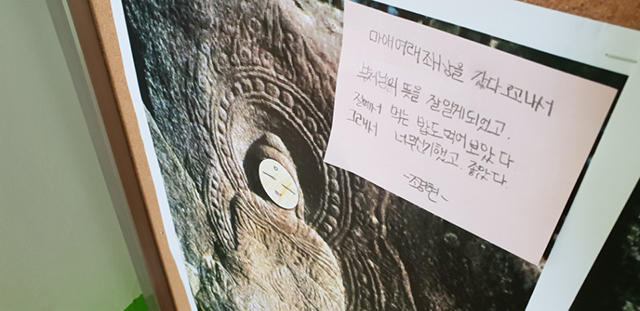 마애여래좌상을 갔다 오고나서
부처님의 뜻을 잘 알게되었고.
절에서 먹는 밥도 먹어 보았다
그래서 신기했고. 좋았다.